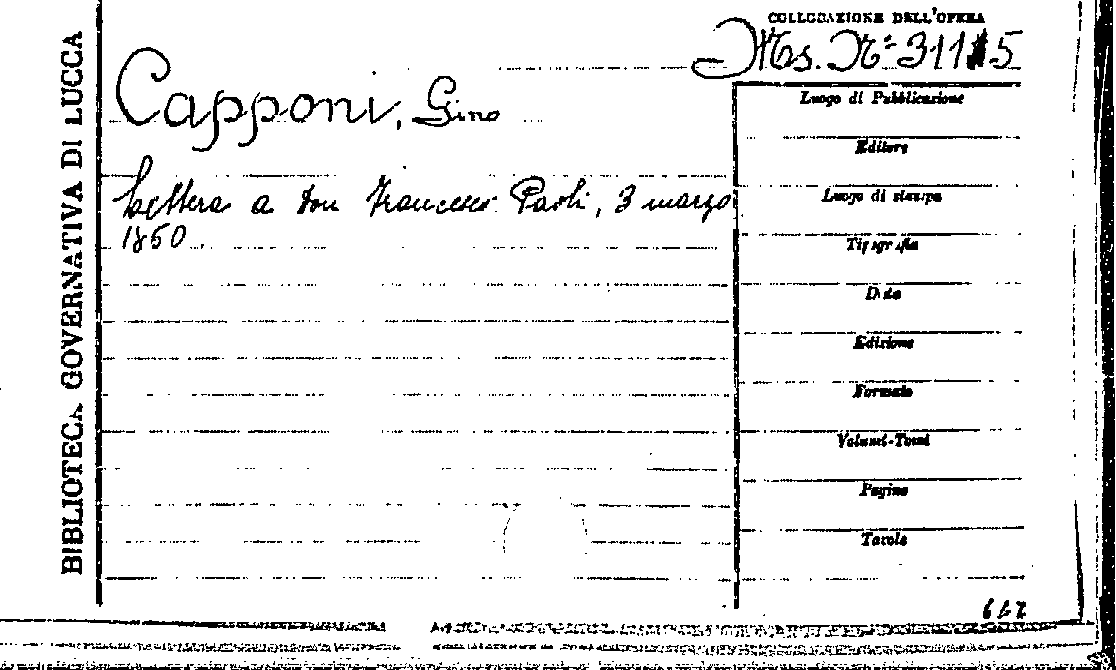 BIBLIOTECA GOVERNATIVA DI LUCCA
COLLOCAZIONE DELL'OPERA
Ms. No 3115
Capponi, Gino
Lettera a Don Francesco Paoli, 3 marzo
1850.
Luogo di Pubblicazione
Editore
Luogo di stampa
Tipografia
Data
Edizione
Formato
Volumi-Tomi
Pagine
Tavole